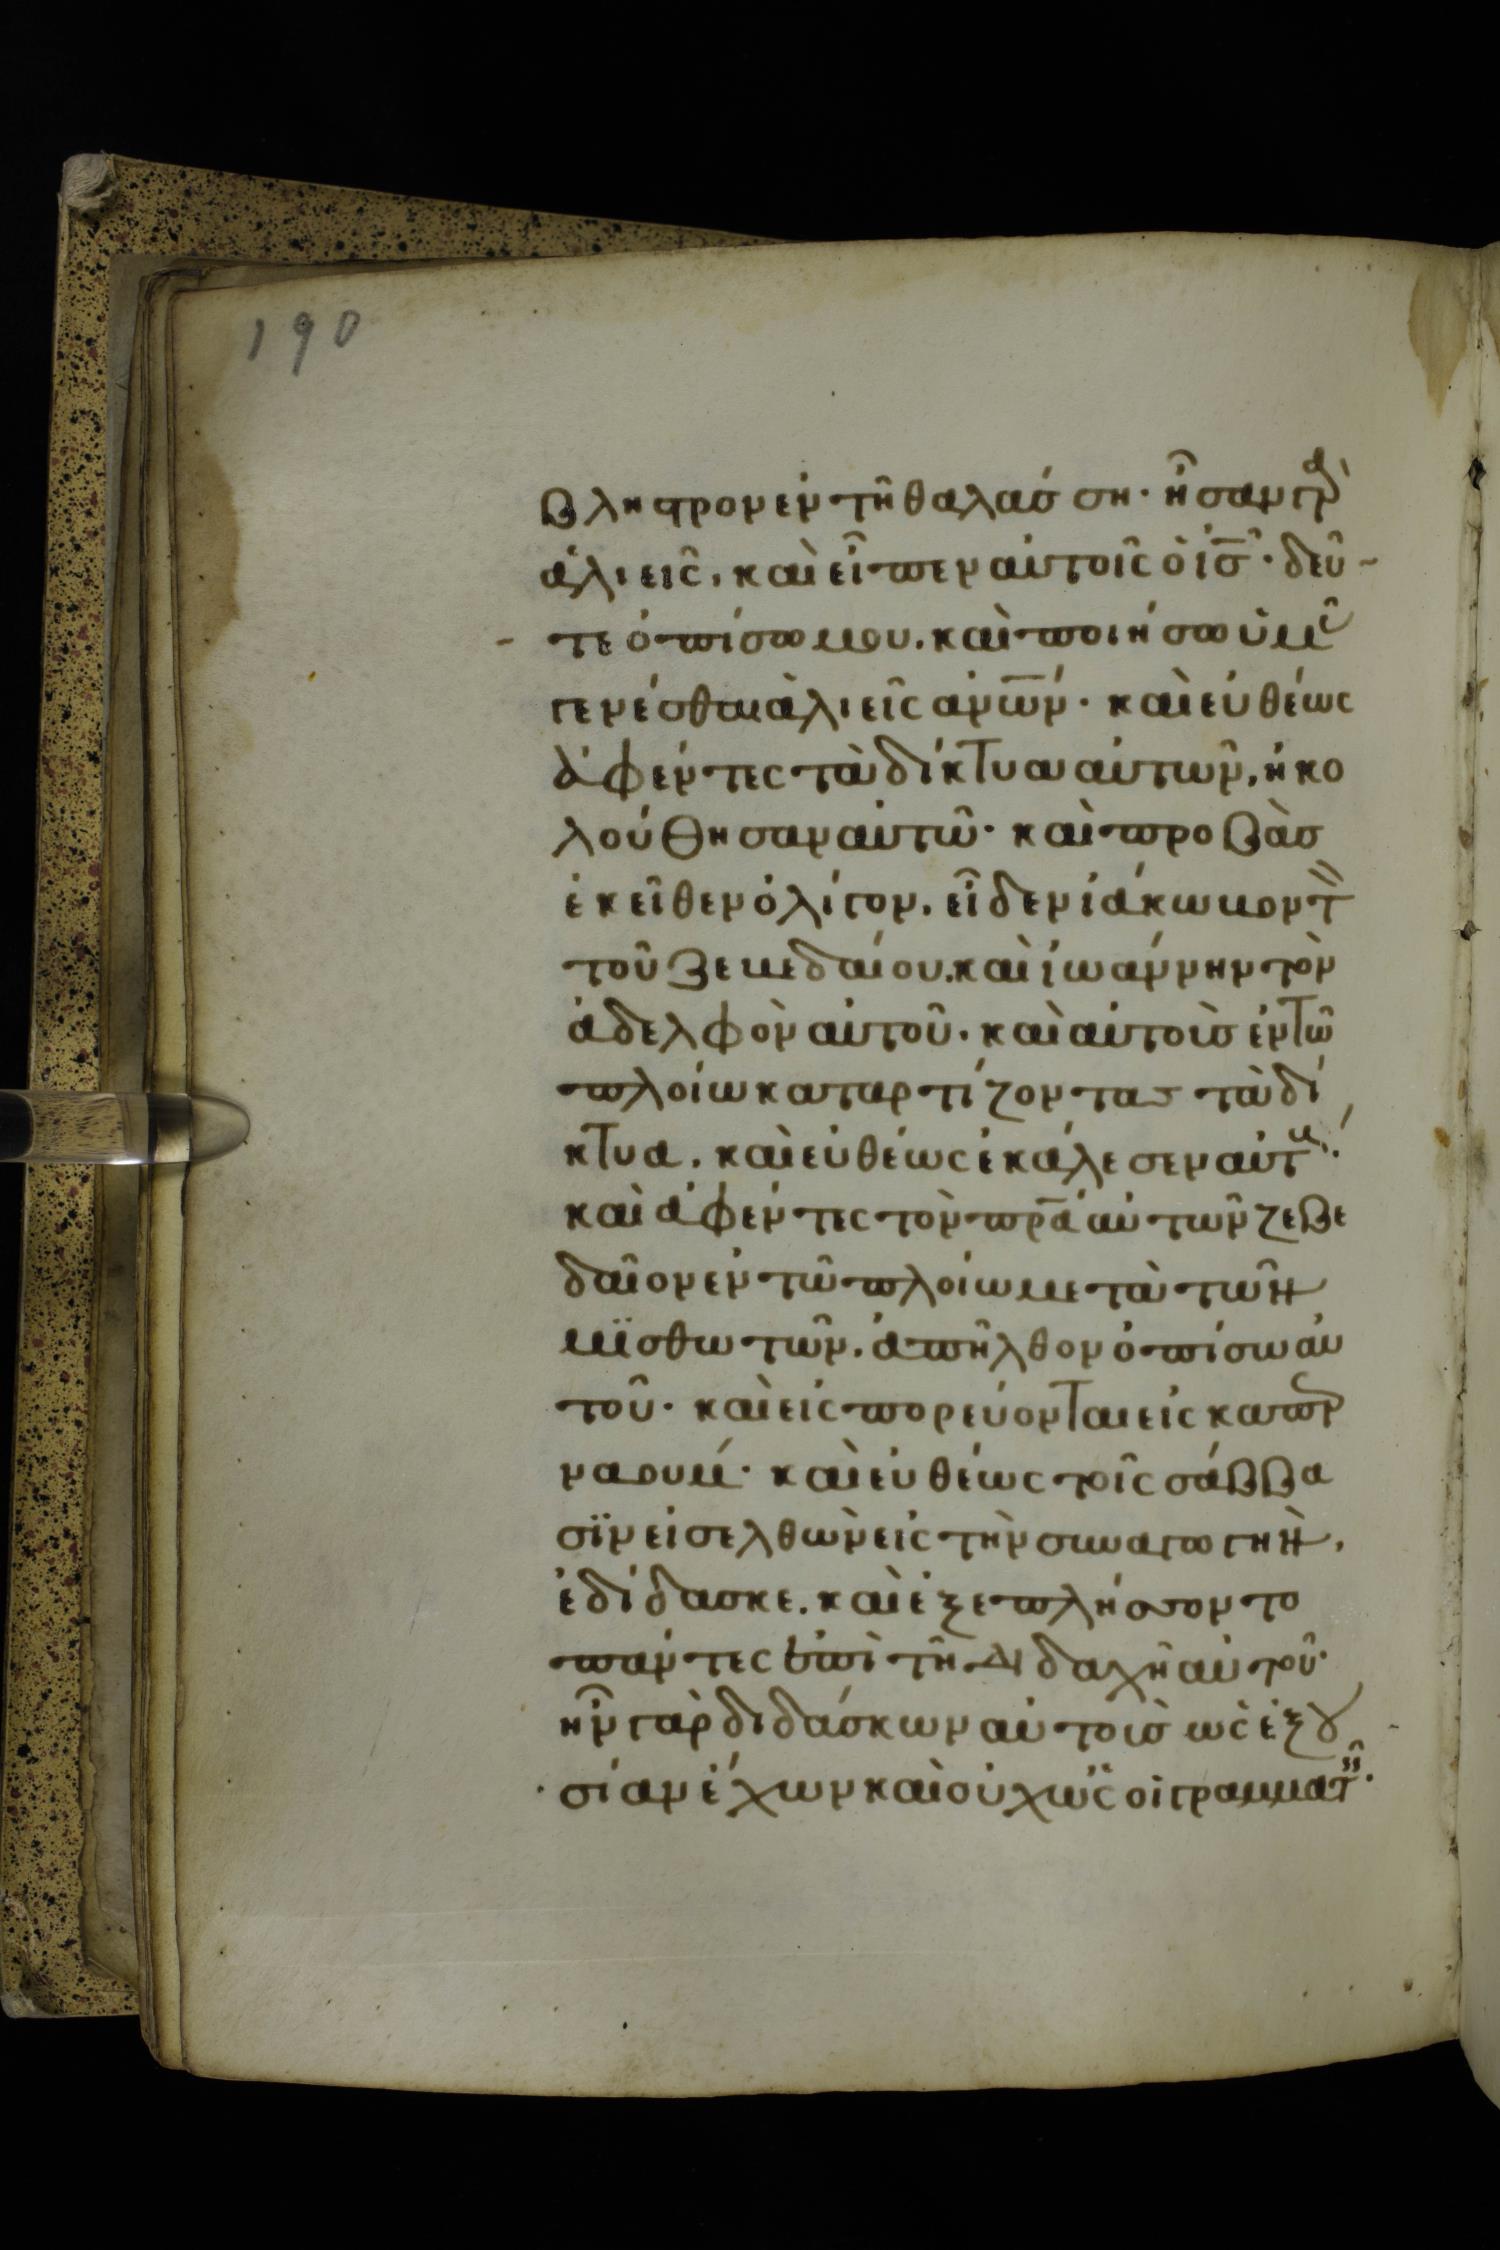 190
βληστρον ἐν τῆ θαλάσση· ἦσαν γὰρ
ἁλιεῖς, καὶ εἶπεν αὐτοῖς ὁ ι̅ς̅· δεῦ-
-τε ὀπίσω μου. καὶ ποιήσω ὑμᾶς
γενέσθαι ἁλιεῖς ἀνω̅ν̅· καὶ εὐθέως
ἀφέντες τὰ δίκτυα αὐτῶν, ἠκο
λούθησαν αὐτῶ· καὶ προβὰσ
ἐκεῖθεν ὀλίγον, εἶδεν ἰάκωβον τὸν
τοῦ ζεβεδαίου. καὶ ἰωάννην τὸν
ἀδελφὸν αὐτοῦ. καὶ αὐτοὺσ ἐν τῶ
πλοίω καταρτίζοντασ τὰ δί
κτυα, καὶ εὐθέως ἐκάλεσεν αὐτούς·
καὶ ἀφέντες τὸν πρ̅α̅ αὐτῶν ζεβε
δαῖον ἐν τῶ πλοίω μετὰ τῶν
μϊσθωτῶν. ἀπῆλθον ὀπίσω αὐ
τοῦ· καὶ εἰςπορεύονται εἰς καπερ
ναούμ· καὶ εὐθέως τοῖς σάββα
σϊν εἰσελθὼν εἰς τὴν συναγωγὴν,
ἐδίδασκε. καὶ ἐξεπλήσσοντο
πάντες ἐπὶ τῆ διδαχῆ αὐτοῦ·
ἦν γὰρ διδάσκων αὐτοὺσ ὡς ἐξου
σίαν ἔχων καὶ οὐχ ὡς οἱ γραμματεῖς·